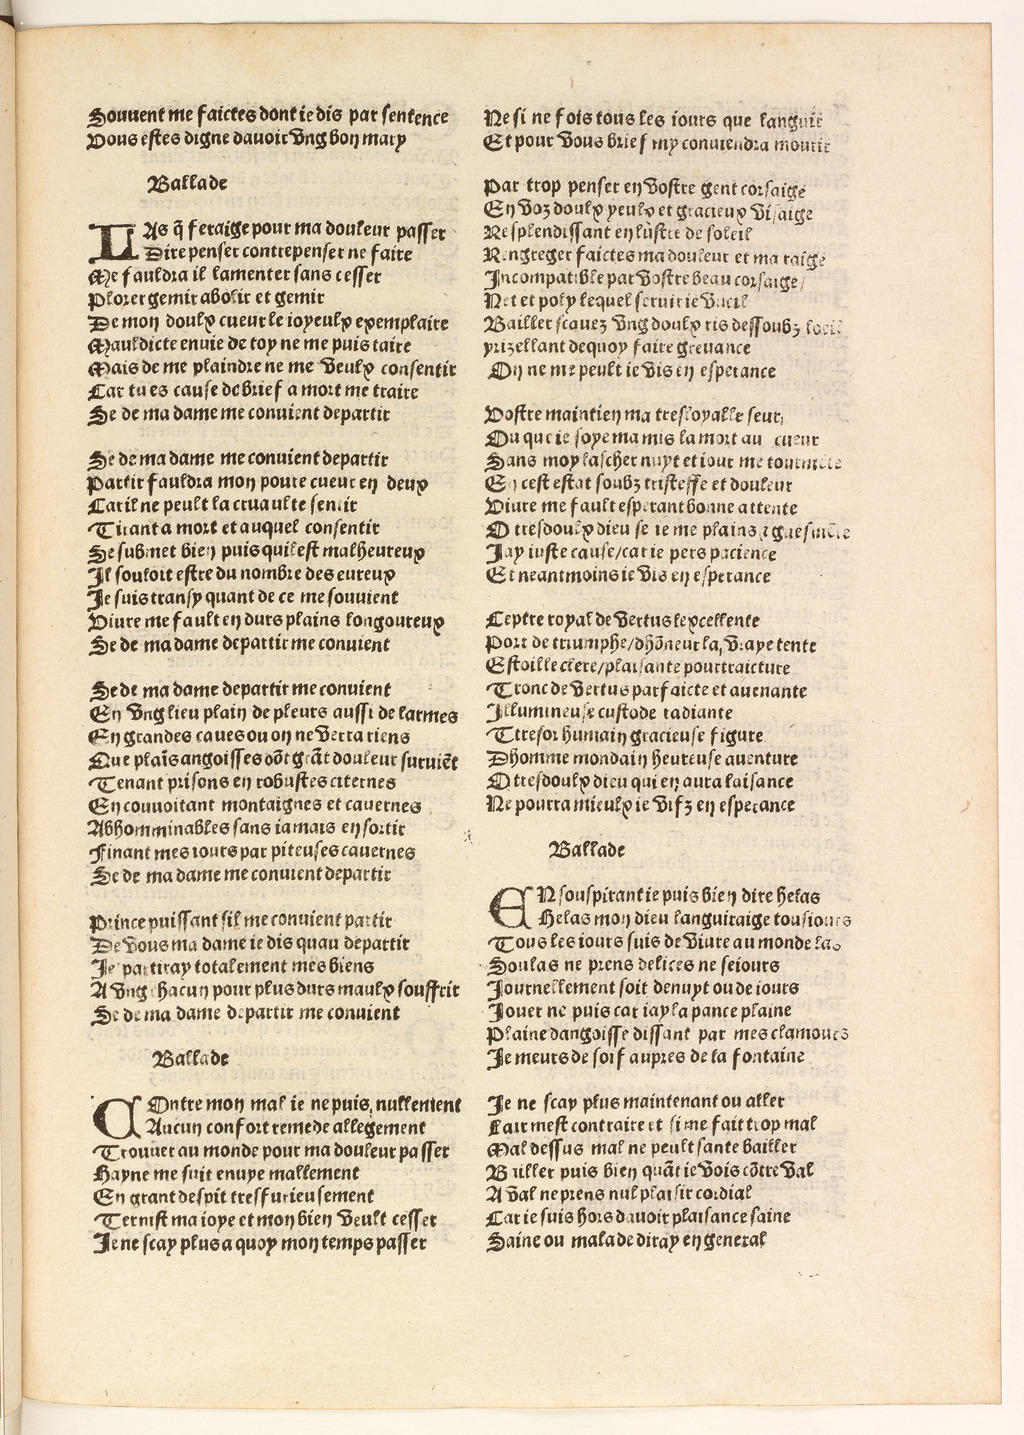 Souuent me faictes dont ie dis par sentence
Vous estes digne dauoir vng bon mary
Ballade
LAs q̃ feraige pour ma douleur passer
Dire penser contrepenser ne faire
Me fauldra il lamenter sans cesser
Plorer gemir abolir et gemir
De mon doulx cueur le ioyeulx exemplaire
Mauldicte enuie de toy ne me puis taire
Mais de me plaindre ne me veulx consentir
Car tu es cause de brief a mort me traire
Se de ma dame me conuient departir
Se de ma dame me conuient departir
Partir fauldra mon poure cueur en deux
Car il ne peult la cruaulte sentir
Tirant a mort et auquel consentir
Se submet bien puis quil est malheureux
Il souloit estre du nombre des eureux
Je suis transy quant de ce me souuient
Viure me fault en durs plains langoureux
Se de ma dame departir me conuient
Se de ma dame departir me conuient
En vng lieu plain de pleurs aussi de larmes
En grandes caues ou on ne verra riens
Que plaīs angoisses dōt grāt douleur suruiēt
Tenant prisons en robustes citernes
En couuoitant montaignes et cauernes
Abhomminables sans iamais en sortir
Finant mes iours par piteuses cauernes
Se de ma dame me conuient departir
Prince puissant sil me conuient partir
De vous ma dame ie dis quau departir
Je partiray totalement mes biens
A vng chacun pour plus durs maulx souffrir
Se de ma dame departir me conuient
Ballade
COntre mon mal ie ne puis nullement
Aucun confort remede allegement
Trouuer au monde pour ma douleur passer
Hayne me suit enuye mallement
En grant despit tresfurieusement
Ternist ma ioye et mon bien veult cesser
Je ne scay plus a quoy mon temps passer
Ne si ne fois tous les iours que languir
Et pour vous brief my conuiendra mourir
Par trop penser en vostre gent corsaige
En voz doulx yeulx et gracieux visaige
Resplendissant en lustre de soleil
Rengreger faictes ma douleur et ma raige
Incompatible par vostre beau corsaige/
Net et poly lequel seruir ie vueil
Bailler scauez vng doulx ris dessoubz loeil
yrizellant dequoy faire greuance
On ne me peult ie vis en esperance
Vostre maintien ma tresloyalle seur
Ou que ie soye ma mis la mort au cueur
Sans moy lascher nuyt et iour me tourmente
En cest estat soubz tristesse et douleur
Viure me fault esperant bonne attente
O tresdoulx dieu se ie me plains
Jay iuste cause/car ie pers pacience
Et neantmoins ie vis en esperance
Ceptre royal de vertus lexcellente
Port de triumphe/dhōneur la vraye tente
Estoille clere/plaisante pourtraicture
Tronc de vertus parfaicte et auenante
Illumineuse custode radiante
Ttresor humain gracieuse figure
Dhomme mondain heureuse auenture
O tresdoulx dieu qui en aura laisance
Ne pourra mieulx ie vifz en esperance
Ballade
EN souspirant ie puis bien dire helas
Helas mon dieu languiraige tousiours
Tous les iours suis de viure au monde las
Soulas ne prens delices ne seiours
Journellement soit denuyt ou de iours
Jouer ne puis car iay la pance plaine
Plaine dangoisse dissant par mes clamours
Je meurs de soif aupres de la fontaine
Je ne scay plus maintenant ou aller
Lair mest contraire et si me fait trop mal
Mal dessus mal ne peult sante bailler
Bailler puis bien quāt ie vois cōtre val
A val ne prens nul plaisir cordial
Car ie suis hors dauoir plaisance saine
Saine ou malade diray en general